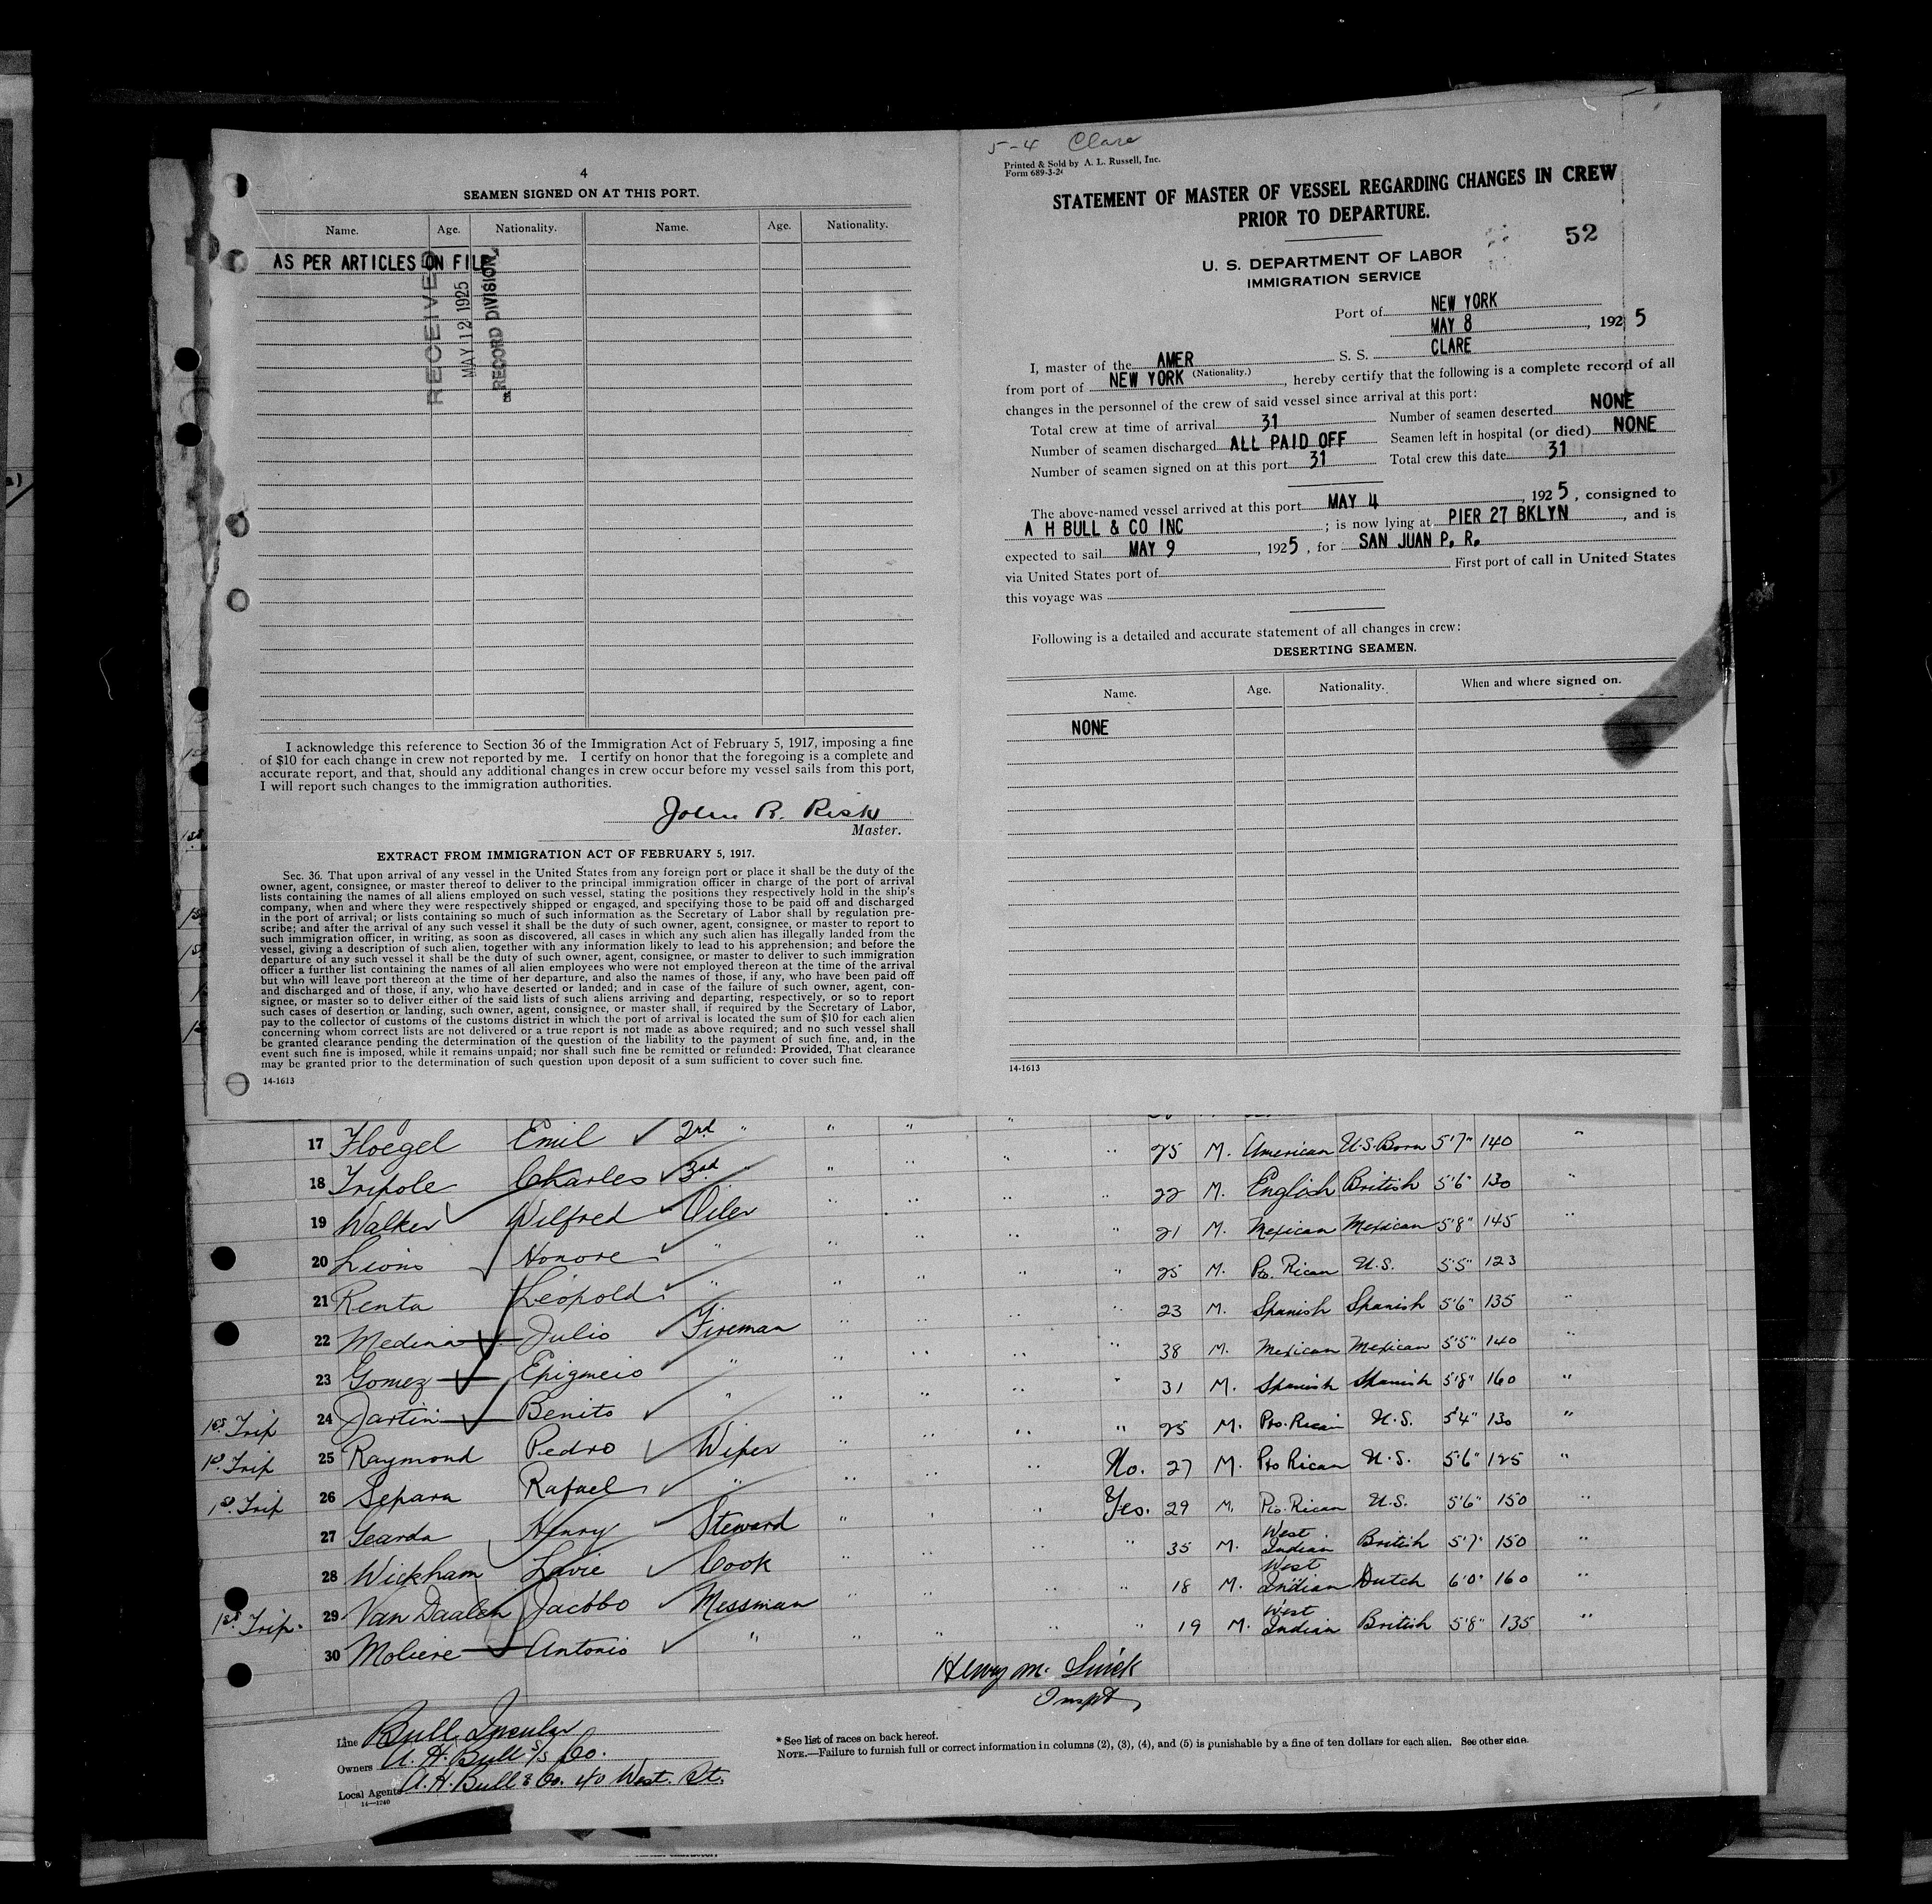 4
SEAMEN SIGNED ON AT THIS PORT.
Name. Age. Nationality. Name. Age. Nationality.
AS PER ARTICLES ON FILE
RECEIVED
MAY 12 1925
RECORD DIVISION
I acknowledge this reference to Section 36 of the Immigration Act of February 5, 1917, imposing a fine
of $10 for each change in crew not reported by me. I certify on honor that the foregoing is a complete and
accurate report, and that, should any additional changes in crew occur before my vessel sails from this port,
I will report such changes to the immigration authorities.
John R. Risk
Master.
EXTRACT FROM IMMIGRATION ACT OF FEBRUARY 5, 1917.
Sec. 36. That upon arrival of any vessel in the United States from any foreign port or place it shall be the duty of the
owner, agent, consignee, or master thereof to deliver to the principal immigration officer in charge of the port of arrival
lists containing the names of all aliens employed on such vessel, stating the positions they respectively hold in the ship's
company, when and where they were respectively shipped or engaged, and specifying those to be paid off and discharged
in the port of arrival; or lists containing so much of such information as the Secretary of Labor shall by regulation pre-
scribe; and after the arrival of any such vessel it shall be the duty of such owner, agent, consignee, or master to report to
such immigration officer, in writing, as soon as discovered, all cases in which any such alien has illegally landed from the
vessel, giving a description of such alien, together with any information likely to lead to his apprehension; and before the
departure of any such vessel it shall be the duty of such owner, agent, consignee, or master to deliver to such immigration
officer a further list containing the names of all alien employees who were not employed thereon at the time of the arrival
but who will leave port thereon at the time of her departure, and also the names of those, if any, who have been paid off
and discharged and of those, if any, who have deserted or landed; and in case of the failure of such owner, agent, con-
signee, or master so to deliver either of the said lists of such aliens arriving and departing, respectively, or so to report
such cases of desertion or landing, such owner, agent, consignee, or master shall, if required by the Secretary of Labor,
pay to the collector of customs of the customs district in which the port of arrival is located the sum of $10 for each alien
concerning whom correct lists are not delivered or a true report is not made as above required; and no such vessel shall
be granted clearance pending the determination of the question of the liability to the payment of such fine, and, in the
event such fine is imposed, while it remains unpaid; nor shall such fine be remitted or refunded: Provided, That clearance
may be granted prior to the determination of such question upon deposit of a sum sufficient to cover such fine.
14-1613
5-4 Clare
Printed & Sold by A. L. Russell, Inc.
Form 689-3-24
STATEMENT OF MASTER OF VESSEL REGARDING CHANGES IN CREW
PRIOR TO DEPARTURE.
52
U. S. DEPARTMENT OF LABOR
IMMIGRATION SERVICE
Port of NEW YORK
MAY 8, 1925
I, master of the AMER S. S. CLARE
(Nationality.)
from port of NEW YORK, hereby certify that the following is a complete record of all
changes in the personnel of the crew of said vessel since arrival at this port:
Total crew at time of arrival 31 Number of seamen deserted NONE
Number of seamen discharged ALL PAID OFF Seamen left in hospital (or died) NONE
Number of seamen signed on at this port 31 Total crew this date 31
The above-named vessel arrived at this port MAY 4, 1925, consigned to
A H BULL & CO INC; is now lying at PIER 27 BKLYN, and is
expected to sail MAY 9, 1925, for SAN JUAN P. R.
via United States port of First port of call in United States
this voyage was
Following is a detailed and accurate statement of all changes in crew:
DESERTING SEAMEN.
Name. Age. Nationality. When and where signed on.
NONE
14-1613
17 Floegel Emil 2nd " " " " " 25 M. American U.S. Born 5'7" 140 "
18 Tripole Charles 3rd " " " " " 22 M. English British 5'6" 130 "
19 Walker Wilfred Oiler " " " " 21 M. Mexican Mexican 5'8" 145 "
20 Lions Honore " " " " " 25 M. Po. Rican U.S. 5'5" 123
21 Renta Leopold " " " " " 23 M. Spanish Spanish 5'6" 135 "
22 Medina Julio Fireman " " " " 38 M. Mexican Mexican 5'5" 140 "
23 Gomez Epigmeio " " " " " 31 M. Spanish Spanish 5'8" 160 "
1st Trip 24 Jartin Benito " " " " " 25 M. Po. Rican U.S. 5'4" 130 "
1st Trip 25 Raymond Pedro Wiper " " " No. 27 M. Po Rican U.S. 5'6" 125 "
1st Trip 26 Separa Rafael " " " " Yes. 29 M. Po. Rican U.S. 5'6" 150 "
27 Gearda Henry Steward " " " " 35 M. West Indian British 5'7" 150 "
28 Wickham Lovie Cook " " " " 18 M. West Indian Dutch 6'0" 160 "
1st Trip. 29 Van Daalen Jacobo Messman " " " " 19 M. West Indian British 5'8" 135 "
30 Moliere Antonio " " "
Henry M. Quick
Inspt
Line Bull Insular
Owners A. H. Bull S/S Co.
Local Agents A. H. Bull & Co. 40 West. St.
14-1240
* See list of races on back hereof.
NOTE.—Failure to furnish full or correct information in columns (2), (3), (4), and (5) is punishable by a fine of ten dollars for each alien. See other side.